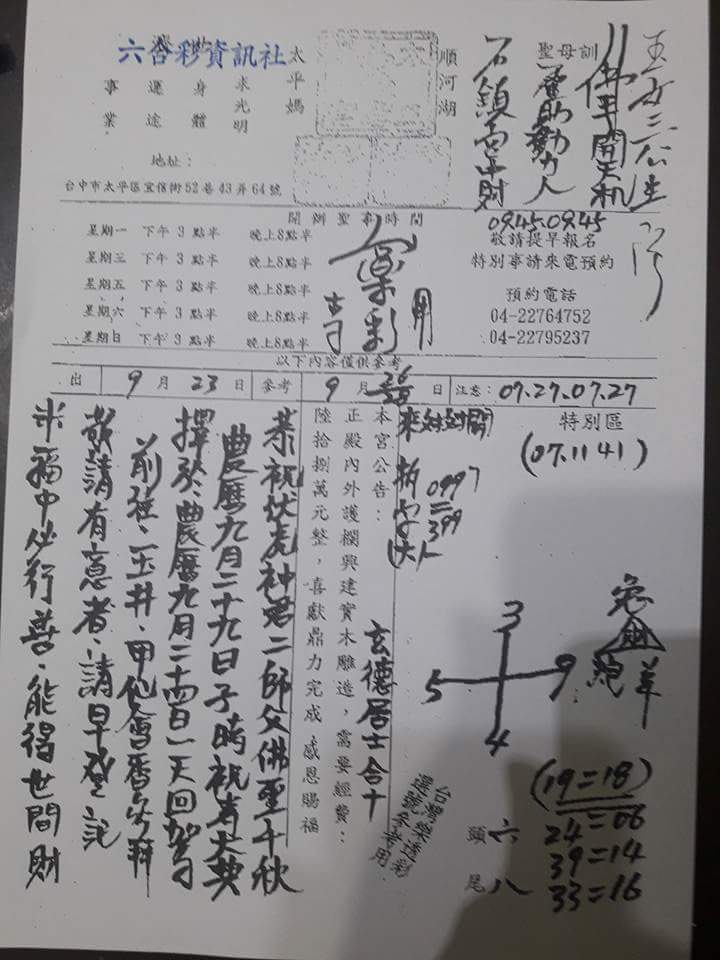 六合彩資訊社
太平媽
求光明
身體
運途
事業
地址：
台中市太平區宜佰街52巷43弄64號
順河湖
聖母訓
佛手開天机
0945.0945
敬請提早報名
特別事請來電預約
預約電話
04-22764752
04-22795237
開辦聖事時間
星期一 下午3點半 晚上8點半
星期三 下午3點半 晚上8點半
星期五 下午3點半 晚上8點半
星期六 下午3點半 晚上8點半
星期日 下午3點半 晚上8點半
以下內容僅供參考
出 9月23日 參考 9月 26 28 日 注意：07.27.07.27
特別區
(07.11 41)
0997
=
399
本宮公告：
正殿內外護欄興建實木雕造，需要經費：
陸拾捌萬元整，喜獻鼎力完成 感恩賜福
玄德居士合十
恭祝伏虎神君二師父佛聖千秋
農曆九月二十九日子時祝壽大典
擇於農曆九月二十四日一天回駕
敬請有意者、請早登記
求福中必行善、能得世間財
3
5 9
4
兔
羊
台灣樂透彩
選號參考用
頭 六
尾 八
(19=18)
24=06
39=14
33=16